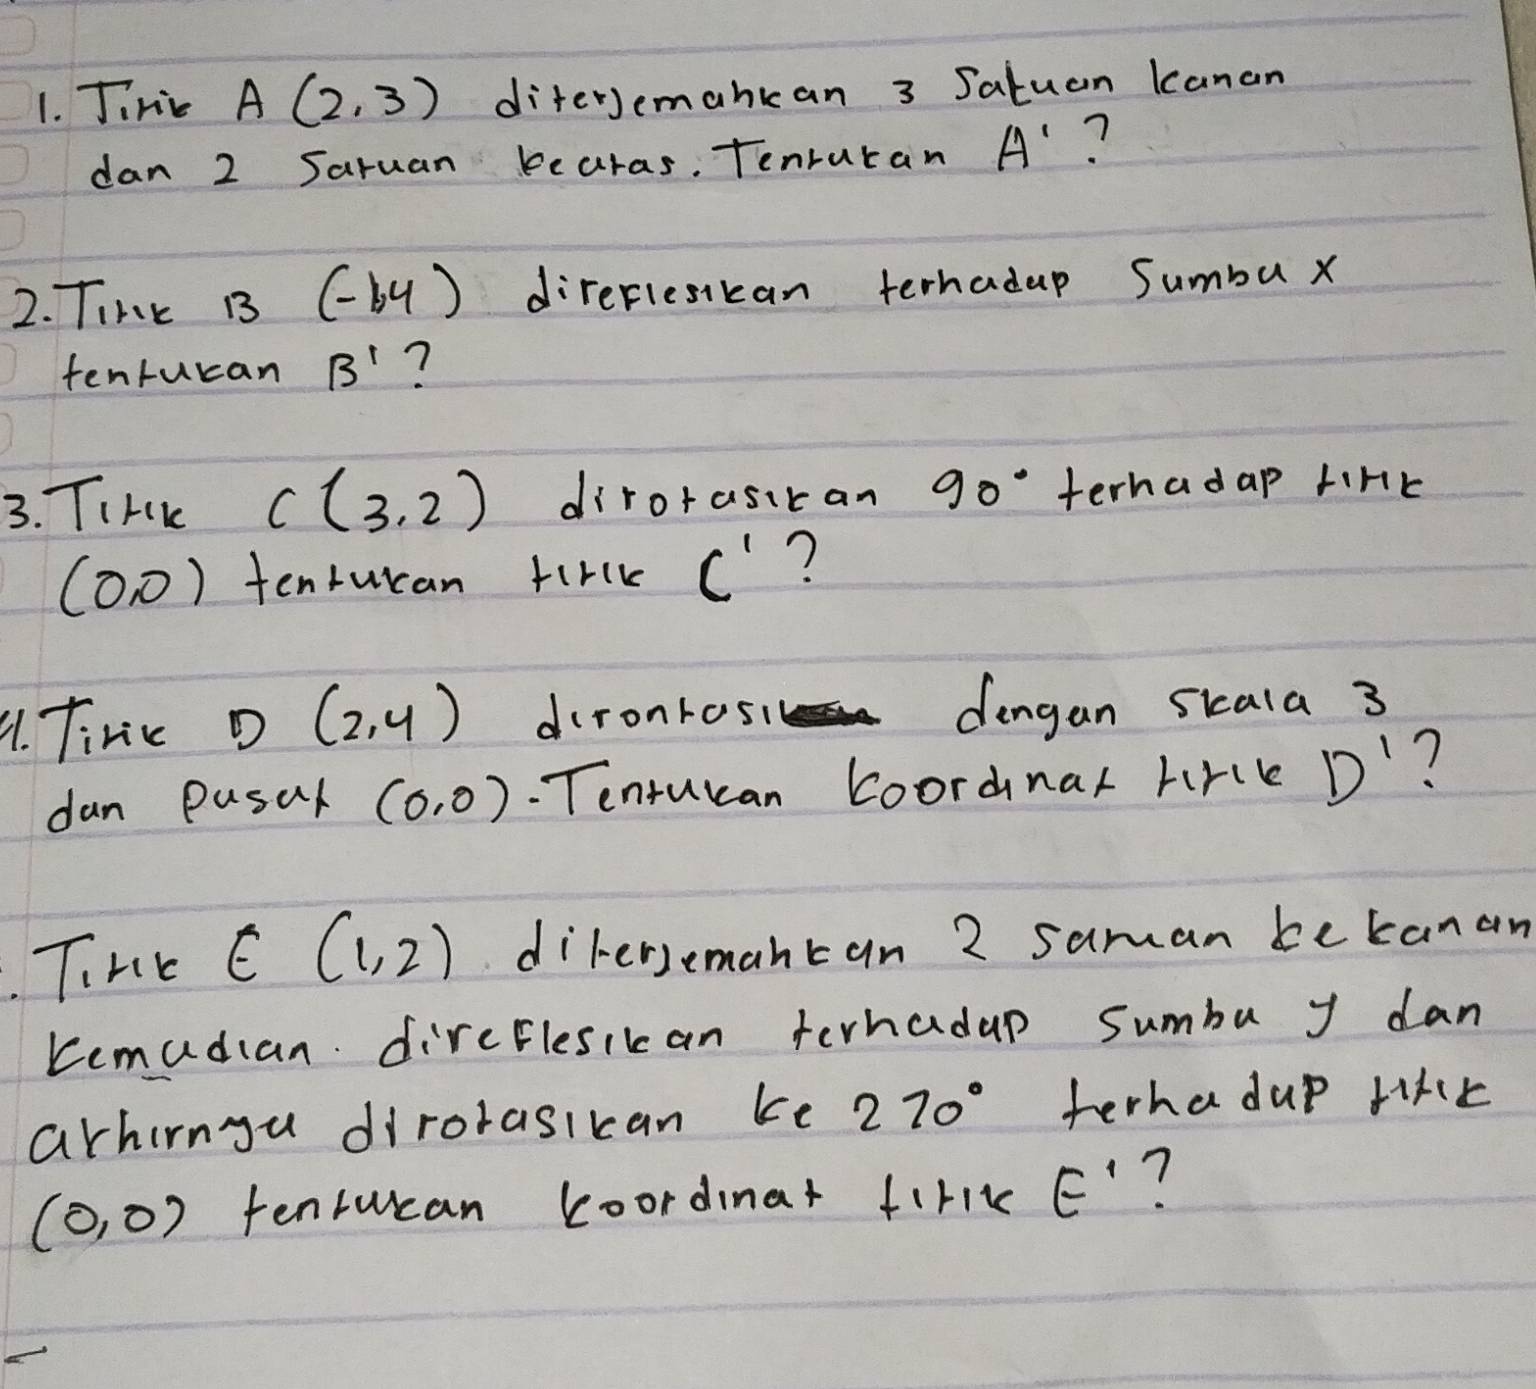 1. Titik A (2,3) diterjemahkan 3 Satuan kanan
dan 2 Satuan keatas. Tentukan A' ?
2. Titik B (-1,4) direflesikan terhadap Sumbu x
tentukan B' ?
3. Titik C (3,2) dirotasikan 90° terhadap titik
(0,0) tentukan titik C' ?
4. Titik D (2,4) dirontasi dengan skala 3
dan pusat (0,0). Tentukan koordinat titik D' ?
. Titik E (1,2) diterjemahkan 2 satuan ke kanan
kemudian. direflesikan terhadap sumbu y dan
akhirnya dirotasikan ke 270° terhadap titik
(0,0) tentukan koordinat titik E' ?